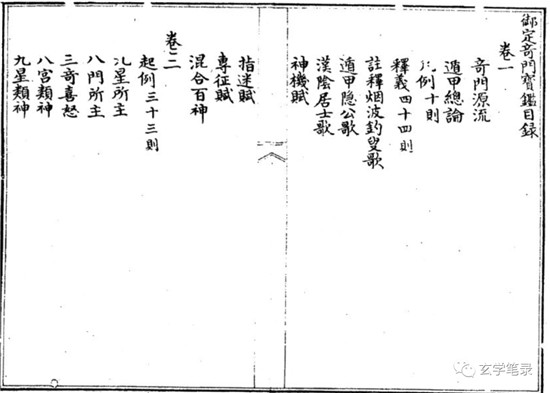 御定奇門寶鑑目録
卷一
奇門源流
遁甲總論
凡例十則
釋義四十四則
註釋烟波釣叟歌
遁甲隐公歌
漢陰居士歌
神機賦
指迷賦
專征賦
混合百神
卷二
起例三十三則
九星所主
八門所主
三奇喜怒
八宮類神
九星類神
玄学笔录